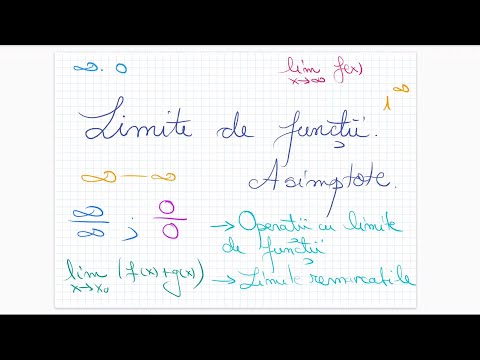 ∞·0
lim f(x)
x→∞
1^∞
Limite de funcții.
∞-∞
Asimptote.
∞/∞ ; 0/0
→Operatii cu limite
de funcții
lim (f(x)+g(x))
x→x₀
→Limite remarcabile